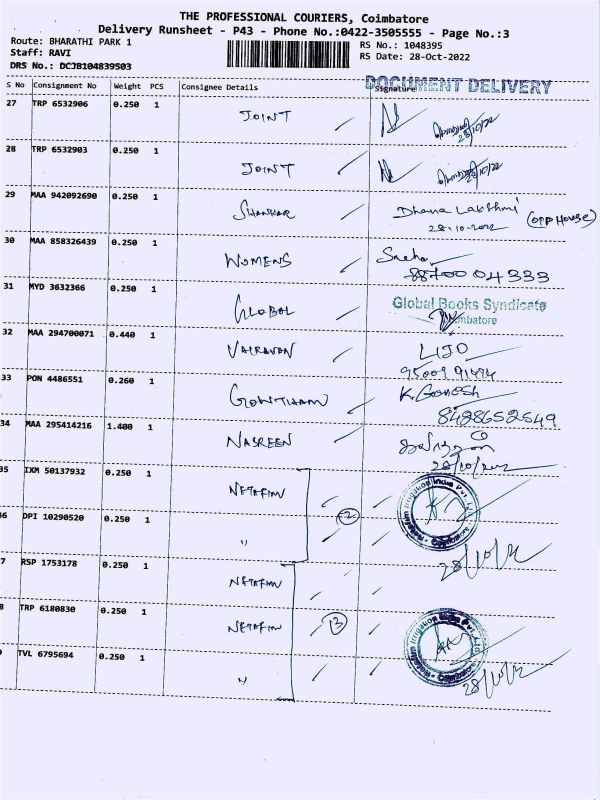 THE PROFESSIONAL COURIERS, Coimbatore
Delivery Runsheet - P43 - Phone No.:0422-3505555 - Page No.:3
Route: BHARATHI PARK 1
RS No.: 1048395
Staff: RAVI
RS Date: 28-Oct-2022
DRS No.: DCJB104839503
DOCUMENT DELIVERY
S No Consignment No Weight PCS Consignee Details Signature
27 TRP 6532906 0.250 1 JOINT 28/10/22
28 TRP 6532903 0.250 1 JOINT
29 MAA 942092690 0.250 1 SHANKAR Dhana Lakshmi (opp House)
28.10.2022
30 MAA 858326439 0.250 1 WOMENS
04333
31 MYD 3632366 0.250 1 GLOBAL Global Books Syndicate
mbatore
32 MAA 294700071 0.440 1 VAIRAVAN LIJO
33 PON 4486551 0.260 1 GOWTHAM K. Ganesh
8428652549
34 MAA 295414216 1.400 1 NASREEN
28/10/2022
35 IXM 50137932 0.250 1 NETAFIM
6 DPI 10290520 0.250 1 " 2
Netafim Irrigation India Pvt. Ltd.
Coimbatore
28/10/22
7 RSP 1753178 0.250 1 NETAFIM
8 TRP 6180830 0.250 1 NETAFIM 3
Netafim Irrigation India Pvt. Ltd.
Coimbatore
TVL 6795694 0.250 1 "
28/10/22